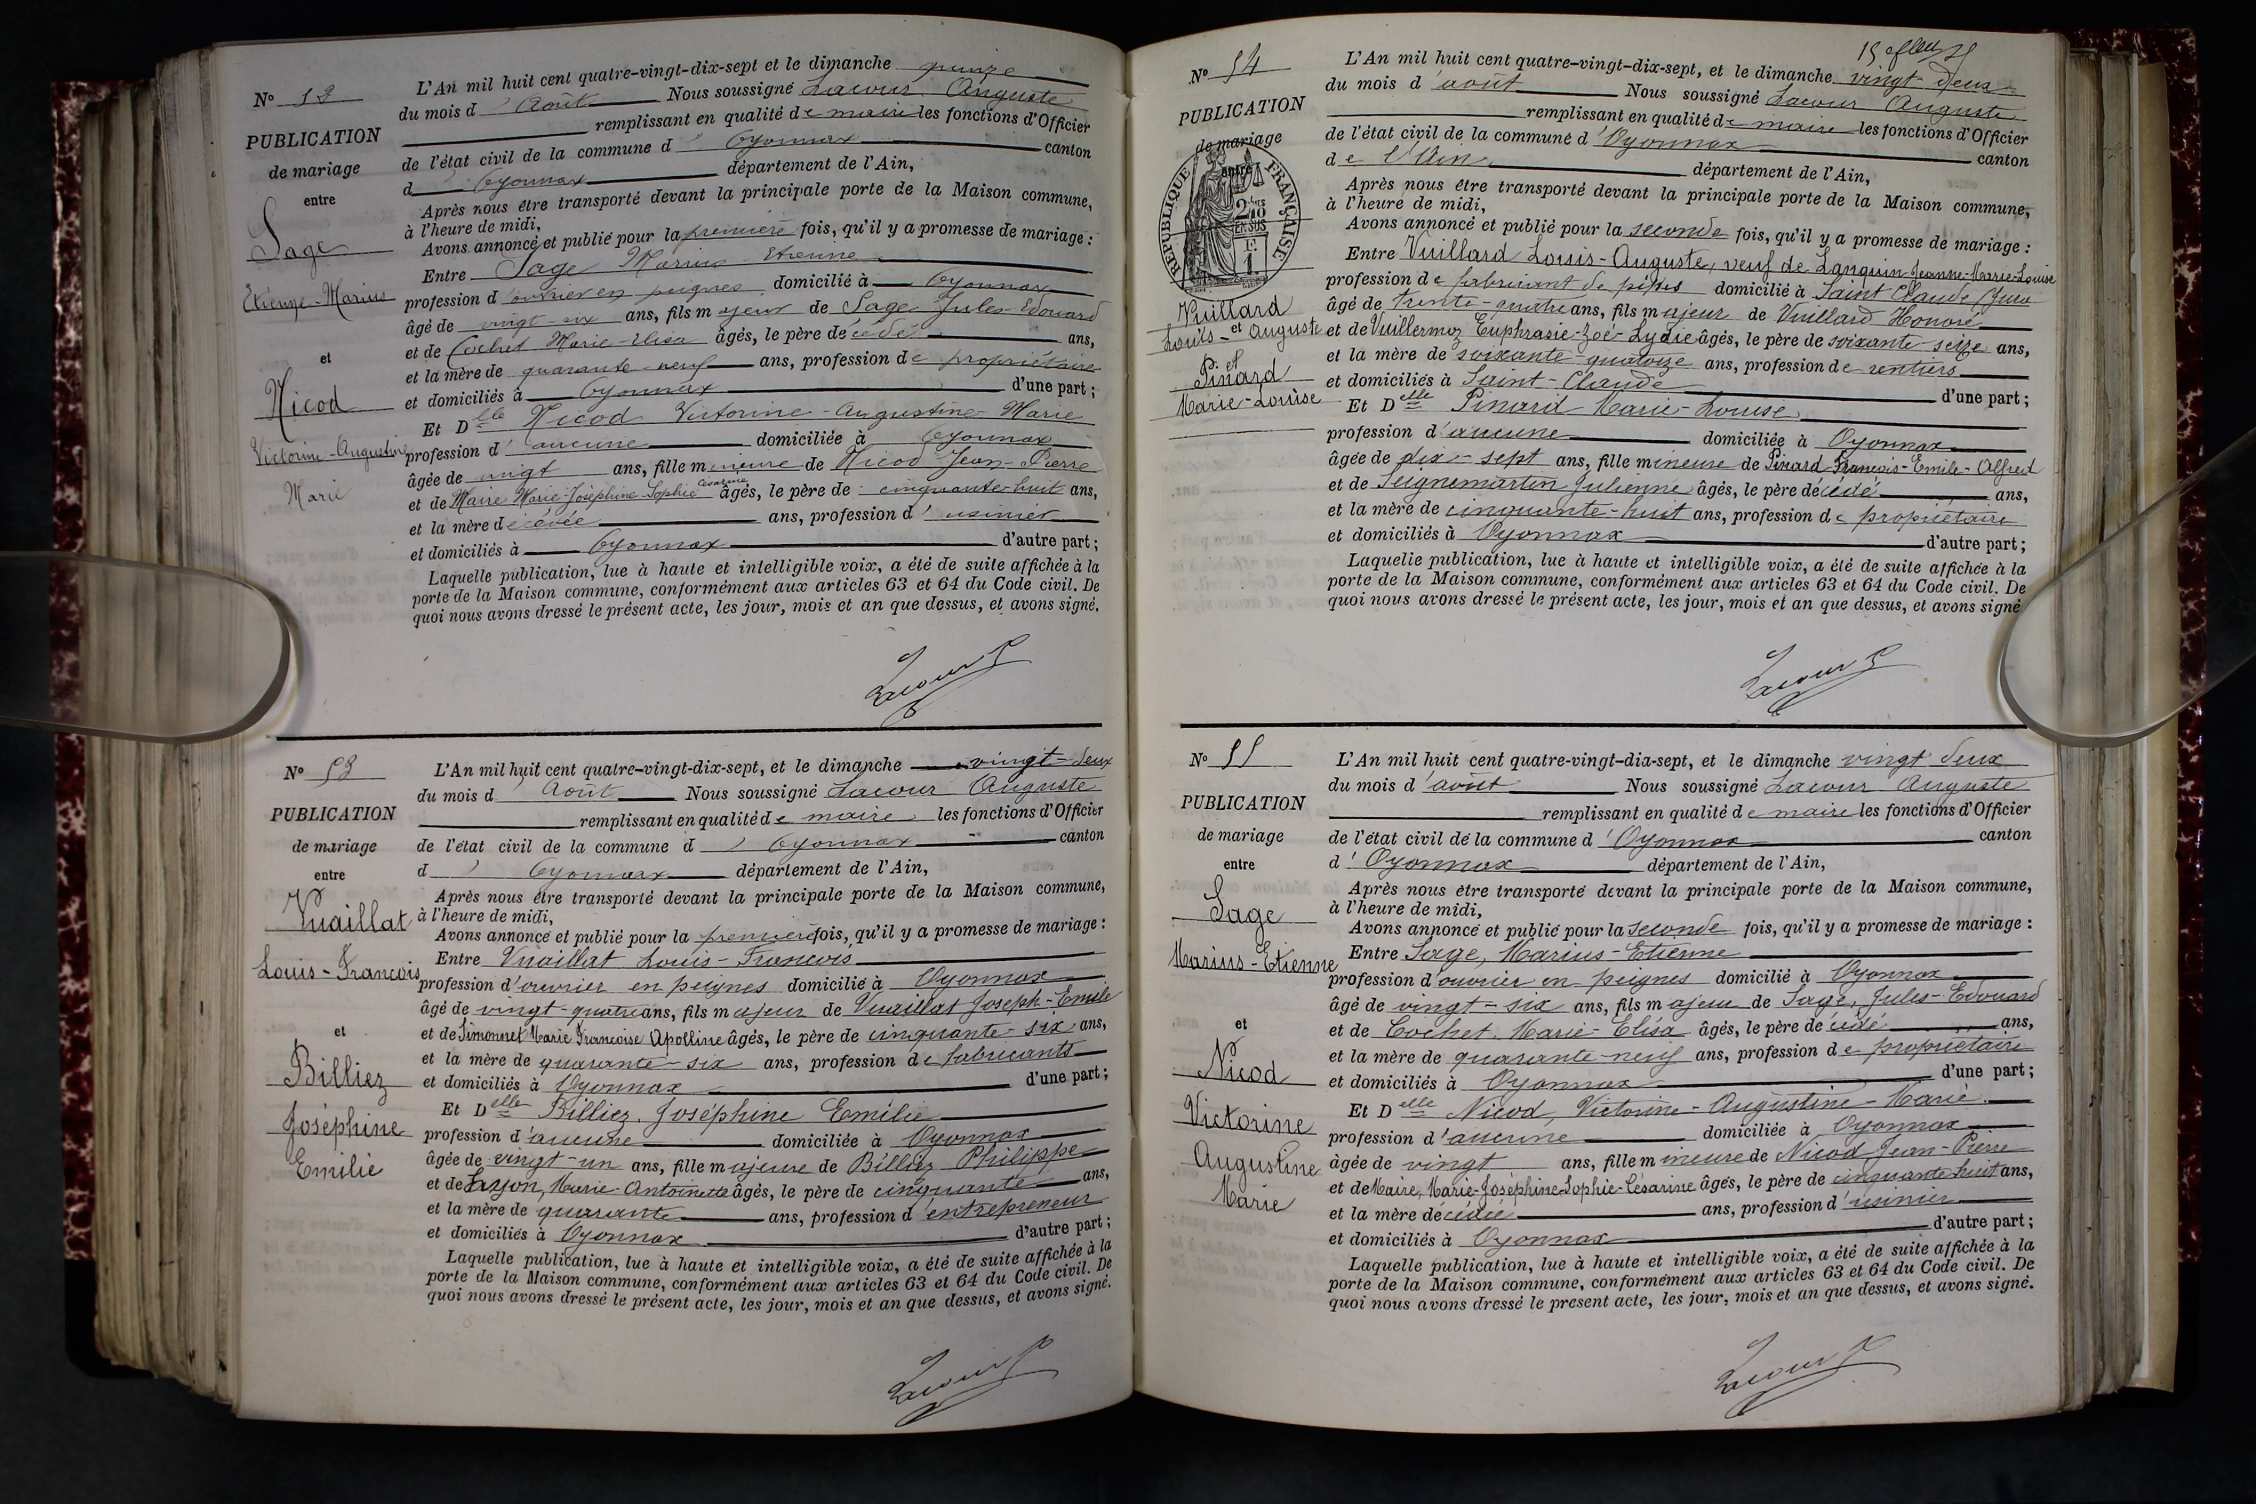 N° 52
PUBLICATION
de mariage
entre
Sage
Etienne-Marius
et
Nicod
Victorine-Augustine
Marie
L'An mil huit cent quatre-vingt-dix-sept et le dimanche quinze
du mois d'Août Nous soussigné Lacour Auguste
remplissant en qualité de maire les fonctions d'Officier
de l'état civil de la commune d'Oyonnax canton
d'Oyonnax département de l'Ain,
Après nous être transporté devant la principale porte de la Maison commune,
à l'heure de midi,
Avons annoncé et publié pour la première fois, qu'il y a promesse de mariage :
Entre Sage Marius Etienne
profession d'ouvrier en peignes domicilié à Oyonnax
âgé de vingt-six ans, fils majeur de Sage Jules-Edouard
et de Cochet Marie-Elisa âgés, le père décédé ans,
et la mère de quarante-neuf ans, profession de propriétaire
et domiciliés à Oyonnax d'une part ;
Et Delle Nicod Victorine-Augustine-Marie
profession d'aucune domiciliée à Oyonnax
âgée de vingt ans, fille mineure de Nicod Jean-Pierre
et de Maire Marie-Joséphine Sophie Césarine âgés, le père de cinquante-huit ans,
et la mère décédée ans, profession d'usinier
et domiciliés à Oyonnax d'autre part ;
Laquelle publication, lue à haute et intelligible voix, a été de suite affichée à la
porte de la Maison commune, conformément aux articles 63 et 64 du Code civil. De
quoi nous avons dressé le présent acte, les jour, mois et an que dessus, et avons signé.
Lacour
N° 53
PUBLICATION
de mariage
entre
Vuaillat
Louis-François
et
Billiez
Joséphine
Emilie
L'An mil huit cent quatre-vingt-dix-sept, et le dimanche vingt-deux
du mois d'Août Nous soussigné Lacour Auguste
remplissant en qualité de maire les fonctions d'Officier
de l'état civil de la commune d'Oyonnax canton
d'Oyonnax département de l'Ain,
Après nous être transporté devant la principale porte de la Maison commune,
à l'heure de midi,
Avons annoncé et publié pour la première fois, qu'il y a promesse de mariage :
Entre Vuaillat Louis-François
profession d'ouvrier en peignes domicilié à Oyonnax
âgé de vingt-quatre ans, fils majeur de Vuaillat Joseph-Emile
et de Simonnet Marie Françoise Apolline âgés, le père de cinquante-six ans,
et la mère de quarante-six ans, profession de fabricants
et domiciliés à Oyonnax d'une part ;
Et Delle Billiez, Joséphine Emilie
profession d'aucune domiciliée à Oyonnax
âgée de vingt-un ans, fille majeure de Billiez Philippe
et de Layon, Marie-Antoinette âgés, le père de cinquante ans,
et la mère de quarante ans, profession d'entrepreneur
et domiciliés à Oyonnax d'autre part ;
Laquelle publication, lue à haute et intelligible voix, a été de suite affichée à la
porte de la Maison commune, conformément aux articles 63 et 64 du Code civil. De
quoi nous avons dressé le présent acte, les jour, mois et an que dessus, et avons signé.
Lacour
N° 54
PUBLICATION
de mariage
entre
REPUBLIQUE FRANÇAISE
Vuillard
Louis-Auguste
et
et
Pinard
Marie-Louise
L'An mil huit cent quatre-vingt-dix-sept, et le dimanche vingt deux
du mois d'août Nous soussigné Lacour Auguste
remplissant en qualité de maire les fonctions d'Officier
de l'état civil de la commune d'Oyonnax canton
de l'Ain département de l'Ain,
Après nous être transporté devant la principale porte de la Maison commune,
à l'heure de midi,
Avons annoncé et publié pour la seconde fois, qu'il y a promesse de mariage :
Entre Vuillard Louis-Auguste, veuf de Languin Jeanne-Marie-Louise
profession de fabricant de pipes domicilié à Saint Claude (Jura
âgé de trente-quatre ans, fils majeur de Vuillard Honoré
et de Vuillermoz Euphrasie-Zoé-Lydie âgés, le père de soixante-seize ans,
et la mère de soixante-quatorze ans, profession de rentiers
et domiciliés à Saint-Claude d'une part ;
Et Delle Pinard Marie-Louise
profession d'aucune domiciliée à Oyonnax
âgée de dix-sept ans, fille mineure de Pinard François-Emile-Alfred
et de Seignemartin Julienne âgés, le père décédé ans,
et la mère de cinquante-huit ans, profession de propriétaire
et domiciliés à Oyonnax d'autre part ;
Laquelle publication, lue à haute et intelligible voix, a été de suite affichée à la
porte de la Maison commune, conformément aux articles 63 et 64 du Code civil. De
quoi nous avons dressé le présent acte, les jour, mois et an que dessus, et avons signé
Lacour
N° 55
PUBLICATION
de mariage
entre
Sage
Marius-Etienne
et
Nicod
Victorine
Augustine
Marie
L'An mil huit cent quatre-vingt-dix-sept, et le dimanche vingt deux
du mois d'août Nous soussigné Lacour Auguste
remplissant en qualité de maire les fonctions d'Officier
de l'état civil de la commune d'Oyonnax canton
d'Oyonnax département de l'Ain,
Après nous être transporté devant la principale porte de la Maison commune,
à l'heure de midi,
Avons annoncé et publié pour la seconde fois, qu'il y a promesse de mariage :
Entre Sage, Marius-Etienne
profession d'ouvrier en peignes domicilié à Oyonnax
âgé de vingt-six ans, fils majeur de Sage, Jules-Edouard
et de Cochet Marie-Elisa âgés, le père décédé ans,
et la mère de quarante-neuf ans, profession de propriétaire
et domiciliés à Oyonnax d'une part ;
Et Delle Nicod, Victorine-Augustine-Marie
profession d'aucune domiciliée à Oyonnax
âgée de vingt ans, fille mineure de Nicod Jean-Pierre
et de Maire, Marie-Joséphine-Sophie-Césarine âgés, le père de cinquante huit ans,
et la mère décédée ans, profession d'usinier
et domiciliés à Oyonnax d'autre part ;
Laquelle publication, lue à haute et intelligible voix, a été de suite affichée à la
porte de la Maison commune, conformément aux articles 63 et 64 du Code civil. De
quoi nous avons dressé le present acte, les jour, mois et an que dessus, et avons signé.
Lacour